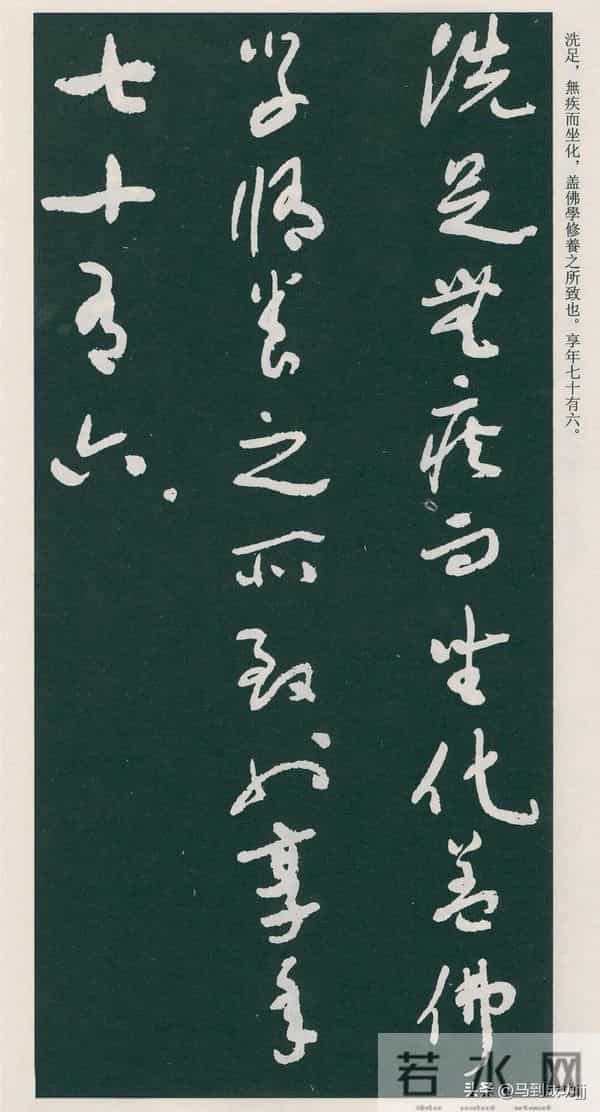 洗足無疾而坐化盖佛
学修养之所致也享年
七十有六
洗足，無疾而坐化，盖佛學修養之所致也。享年七十有六。
若水网
头条@马到成功jj